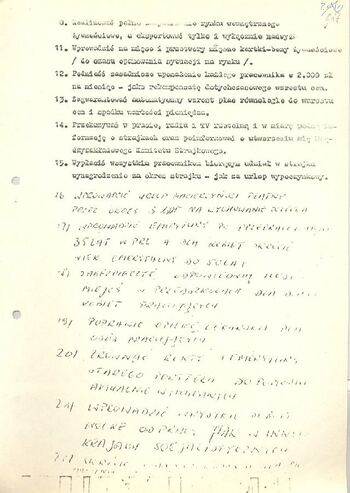 8. Realizować pełne rynku wewnętrznego
żywnościowe, a eksportować tylko i wyłącznie nadwyżki
11. Wprowadzić na mięso i przetwory mięsne kartki-bony żywnościowe
/ do czasu opanowania sytuacji na rynku /.
12. Podnieść zasadnicze uposażenie każdego pracownika o 2.000 zł
na miesiąc - jako rekompensatę dotychczasowego wzrostu cen.
13. Zagwarantować automatyczny wzrost płac równolegle do wzrostu
cen i spadku wartości pieniądza.
14. Przekazywać w prasie, radiu i TV rzetelną i w miarę pełną in-
formację o strajkach oraz poinformować o utworzeniu się Mię-
dzyzakładowego Komitetu Strajkowego.
15. Wypłacić wszystkim pracownikom biorącym udział w strajku
wynagrodzenie za okres strajku - jak za urlop wypoczynkowy.
16 WPROWADZIĆ URLOP MACIERZYŃSKI PŁATNY
PRZEZ OKRES 3 LAT NA WYCHOWANIE DZIECKA
17) WPROWADZIĆ EMERYTURY PO PRZEPRACOWANIU
35 LAT W PRL A DLA KOBIET SKRÓCIĆ
WIEK EMERYTALNY DO 50 LAT
18) ZABEZPIECZYĆ ODPOWIEDNIĄ ILOŚĆ
MIEJSC W PRZEDSZKOLACH DLA DZIECI
KOBIET PRACUJĄCYCH
19) POPRAWIĆ OPIEKĘ LEKARSKĄ DLA
OSÓB PRACUJĄCYCH
20) ZRÓWNAĆ RENTY I EMERYTURY
STAREGO PORTFELA DO POZIOMU
AKTUALNIE WYPŁACANYCH
21) WPROWADZIĆ WSZYSTKIE SOBOTY
WOLNE OD PRACY JAK W INNYCH
KRAJACH SOCJALISTYCZNYCH
22) SKRÓCIĆ